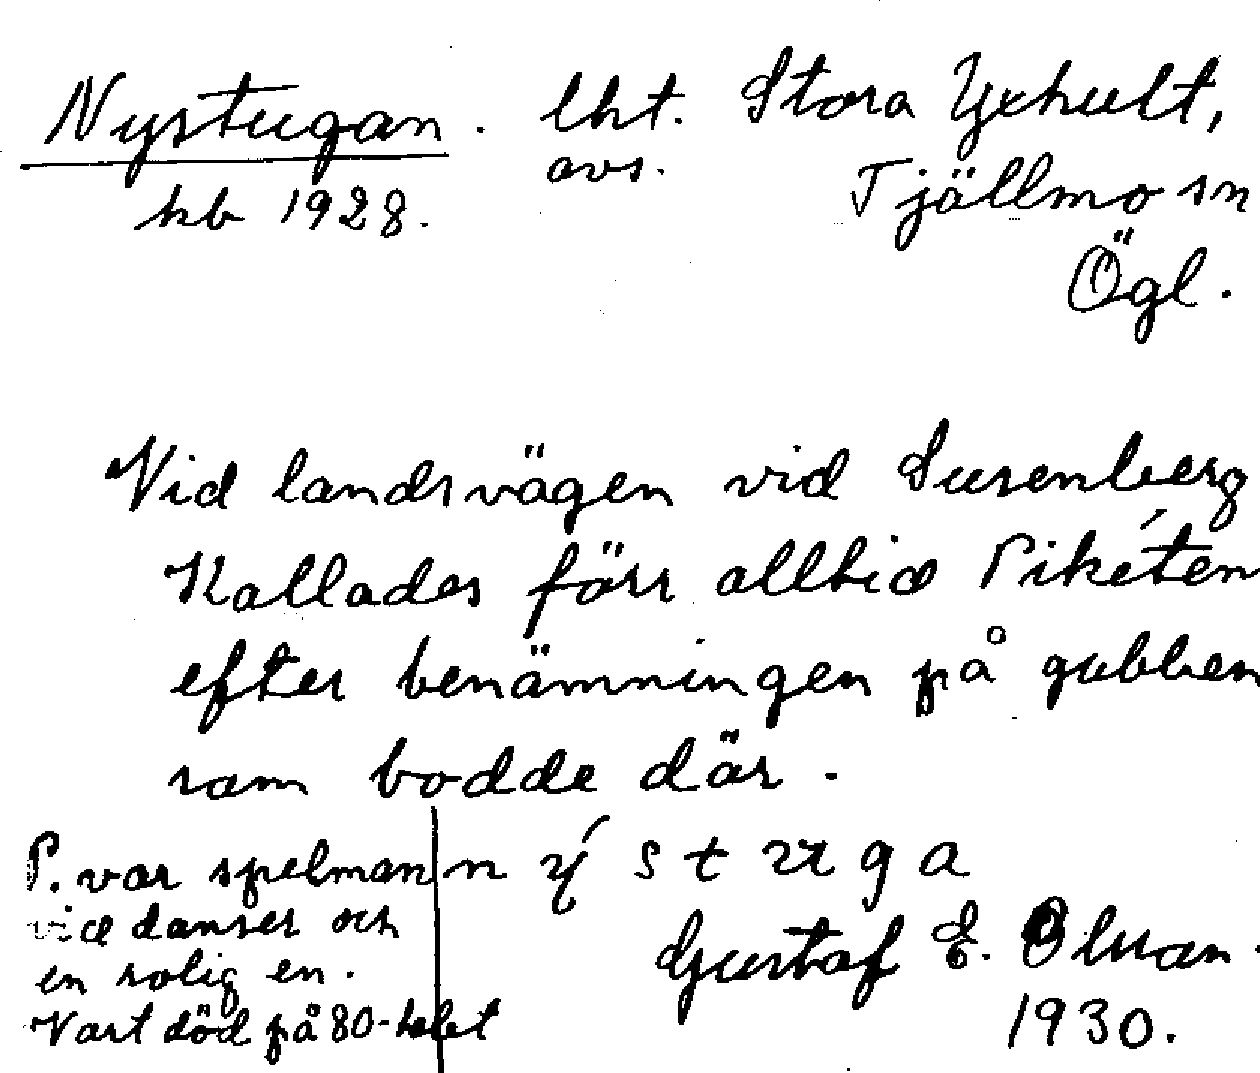 Nystugan. lht. Stora Yxhult,
avs. Tjällmo sn
kb 1928.
Ögl.
Vid landsvägen vid Susenberg
Kallades förr alltid Pikéten
efter benämningen på gubben
som bodde där.
n ý s t u g a
P. var spelman
vid danser och
en rolig en.
Vart död på 80-talet
Gustaf E. Olsson.
1930.